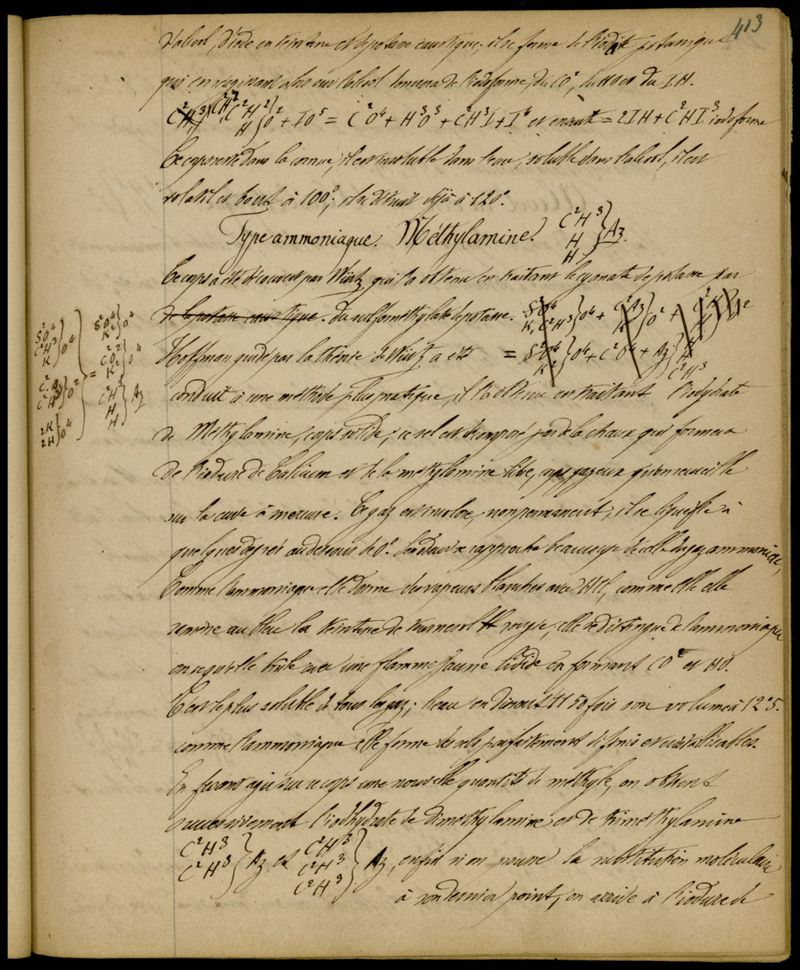 413
d'alcool, d'iode en teinture et de potasse caustique; il se forme de l'iodate potassique
qui en réagissant alors sur l'alcool donnera de l'iodoforme, du CO², de l'eau et du IH.
O² + IO⁵ = C²O⁴ + H³O³ + C²H³I + I⁴ et ensuite = 2IH + C²HI³ iodoforme
Ce corps reste dans la cornue; il est insoluble dans l'eau, soluble dans l'alcool, il est
volatil et bout à 100°; il se détruit déjà à 120°.
Type ammoniaque. Méthylamine. C²H³ H H } Az.
Ce corps a été découvert par Wurtz, qui l'a obtenu en traitant le cyanate de potasse par
de la potasse caustique. du sulfométhylate de potasse.
Hoffman guidé par la théorie de Wurtz a été
conduit à une méthode plus pratique, il l'a obtenu en traitant l'iodhydrate
de Méthylamine, corps solide; ce sel est décomposé par de la chaux qui formera
de l'iodure de Calcium et de la méthylamine libre, corps gazeux qu'on recueille
sur la cuve à mercure. Ce gaz est incolore, non permanent, il se liquéfie à
quelques degrés au dessous de 0°. Son odeur se rapproche beaucoup de celle du gaz ammoniac,
Comme l'ammoniaque elle donne des vapeurs blanches avec HCl, comme elle elle
ramène au bleu la teinture de tournesol rouge, elle se distingue de l'ammoniaque
en ce qu'elle brûle avec une flamme jaune livide en formant CO² et HO.
C'est le plus soluble de tous les gaz; l'eau en dissout 1150 fois son volume à 12°5.
comme l'ammoniaque elle forme des sels parfaitement définis et cristallisables.
En faisant agir sur ce corps une nouvelle quantité de méthyle, on obtient
successivement l'iodhydrate de dimethylamine et de trimethylamine
C²H³ C²H³ } Az et C²H³ C²H³ C²H³ } Az, enfin si on pousse la substitution moléculaire
à son dernier point, on arrive à l'iodure de